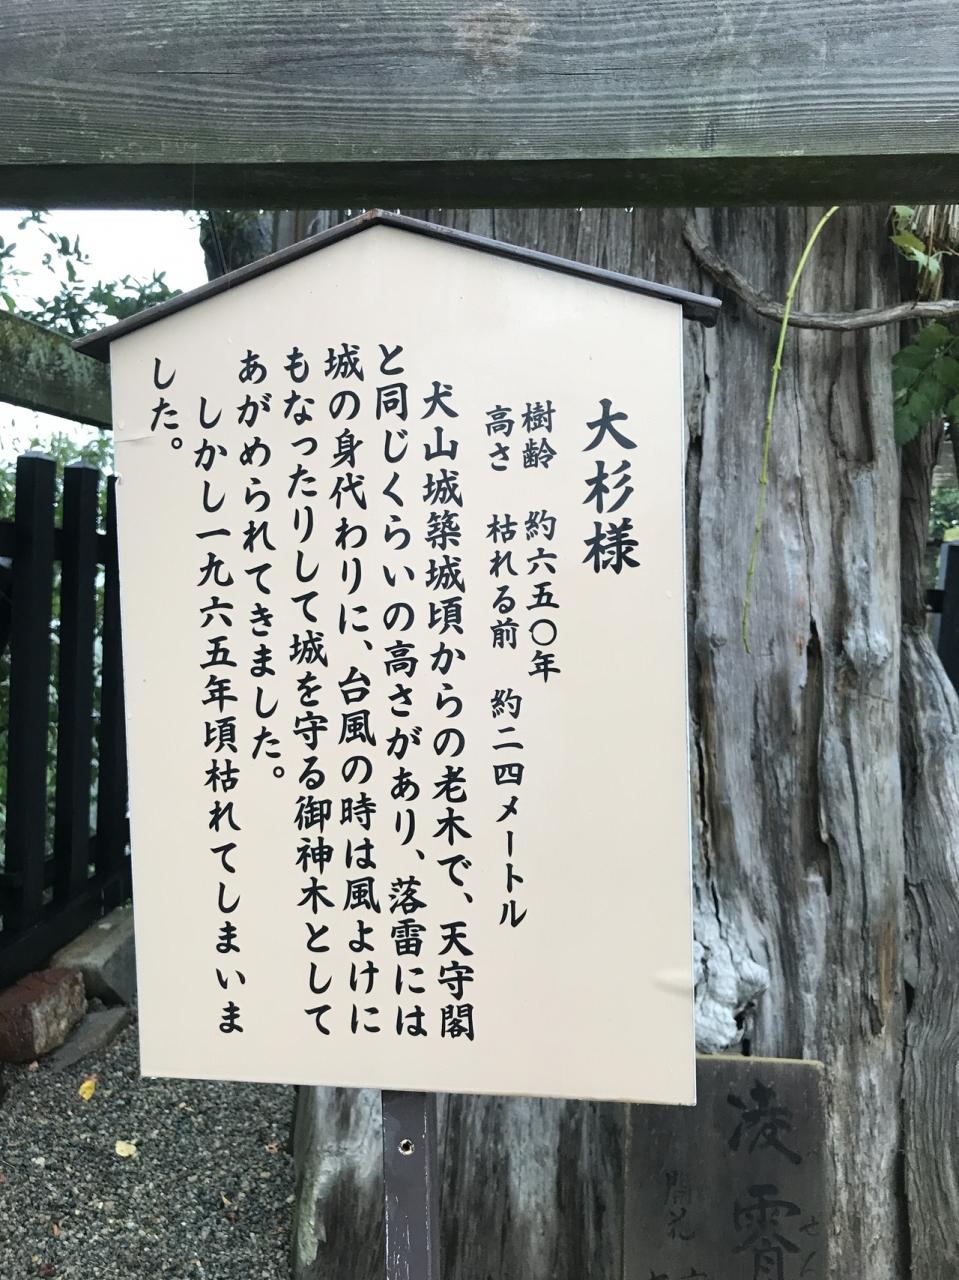 大杉様
樹齢　約六五〇年
高さ　枯れる前　約二四メートル
犬山城築城頃からの老木で、天守閣
と同じくらいの高さがあり、落雷には
城の身代わりに、台風の時は風よけに
もなったりして城を守る御神木として
あがめられてきました。
しかし一九六五年頃枯れてしまいま
した。
凌霄
せん
開花